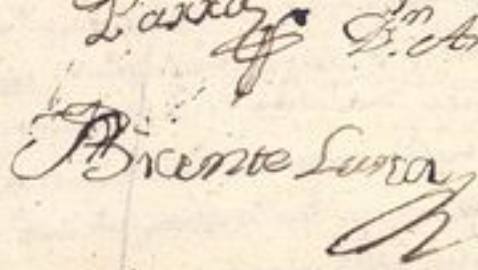 Parra Dn. An
Bicente Luna